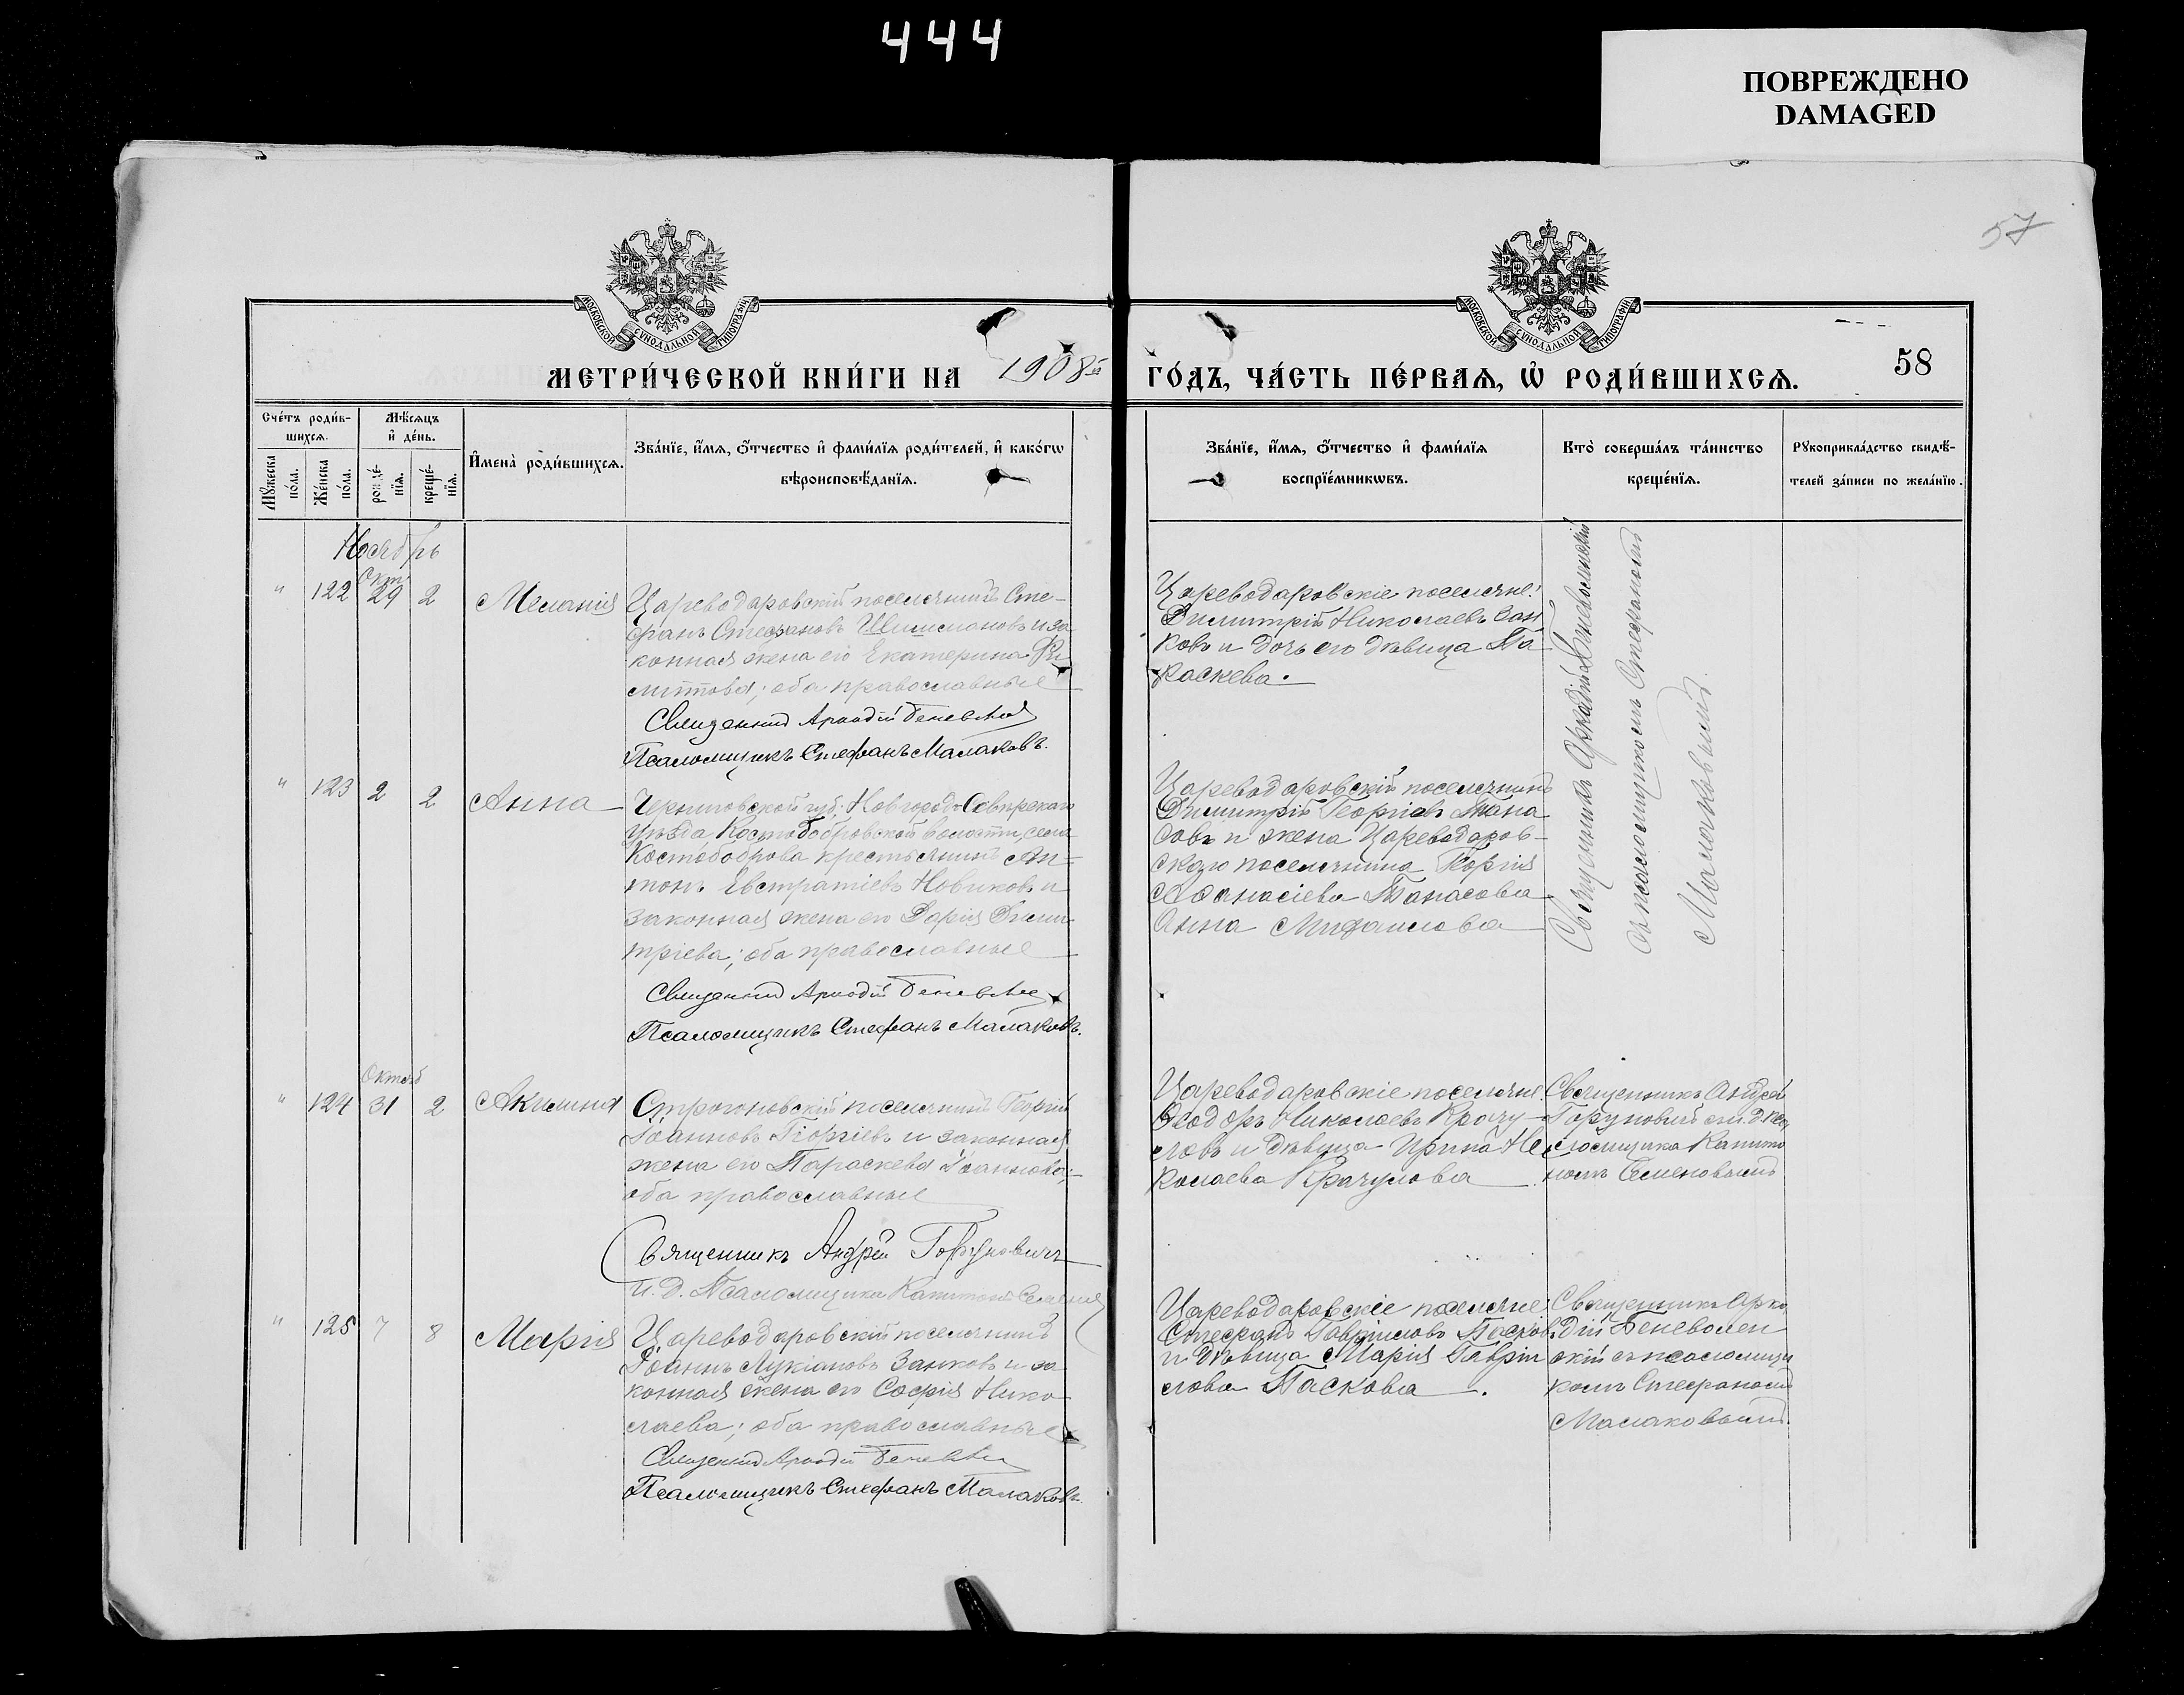 444
ПОВРЕЖДЕНО
DAMAGED
57
МОСКОВСКОЙ СѴНОДАЛЬНОЙ ТИПОГРАФІИ
МОСКОВСКОЙ СѴНОДАЛЬНОЙ ТИПОГРАФІИ
МЕТРИ́ЧЕСКОЙ КНИ́ГИ НА 1908й
ГО́ДЪ, ЧА́СТЬ ПЕ́РВАѦ, Ѽ РОДИ́ВШИХСѦ.
58
Сче́тъ роди́в-
шихсѧ.
Мꙋжеска по́ла.
Же́нска по́ла.
Мѣ́сѧцъ
и҆ де́нь.
рожде́-
нїѧ.
креще́-
нїѧ.
И҆мена̀ роди́вшихсѧ.
Зва́нїе, и҆́мѧ, ѻ҆́тчество и҆ фами́лїѧ роди́телей, и҆ како́гѡ
вѣроисповѣ́данїѧ.
Зва́нїе, и҆́мѧ, ѻ҆́тчество и҆ фами́лїѧ
воспрїе́мникѡвъ.
Кто̀ соверша́лъ та́инство
креще́нїѧ.
Рꙋкоприкла́дство свидѣ́-
телей за́писи по жела́нїю.
Ноябрь
" 122 Окт. 29 2 Меланія
Цареводаровскій поселянинъ Сте-
фанъ Стефановъ Шишмановъ и за
конная жена его Екатерина Фи
липпова; оба православные
Священникъ Аркадій Беневол
Псаломщикъ Стефанъ Малаковъ.
Цареводаровскіе поселяне:
Димитрій Николаевъ Зан
ковъ и дочь его девица Па
раскева.
Священникъ Аркадій Беневоленскій
съ псаломщикомъ Стефаномъ
Малаковымъ.
" 123 2 2 Анна
Черниговской губ; Новгород-Северскаго
Уезда, Костобобровской волости, села
Костобоброва крестьянинъ Ан-
тонъ Евстратіевъ Новиковъ и
законная жена его Дарія Дими
тріева; оба православные
Священникъ Аркадій Беневол
Псаломщикъ Стефанъ Малаковъ.
Цареводаровскій поселянинъ
Димитрій Георгіевъ Тана
совъ и жена Цареводаров-
скаго поселянина Георгія
Афанасіева Танасова
Анна Михаилова
" 124 Октяб 31 2 Акилина
Строгоновскій поселянинъ Георгій
Іоанновъ Георгіевъ и законная
жена его Параскева Іоаннова;
оба православные
Священникъ Андрей Горуновичъ
И. Д. Псаломщика Капитонъ Семенов
Цареводаровскіе поселяне
Ѳеодоръ Николаевъ Крачу-
ловъ и девица Ирина Ни
колаева Крачулова
Священникъ Андрей
Горуновичъ съ и. д. пса
ломщика Капито
номъ Семеновымъ
" 125 7 8 Марія
Цареводаровскій поселянинъ
Іоаннъ Лукіановъ Занковъ и за
конная жена его Софія Нико
лаева; оба православные
Священникъ Аркадій Беневол
Псаломщикъ Стефанъ Малаковъ.
Цареводаровскіе поселяне:
Стефанъ Гавріиловъ Пасковъ
и девица Марія Гавріи
лова Паскова.
Священникъ Арка
дій Беневолен
скій съ псаломщи
комъ Стефаномъ
Малаковымъ.